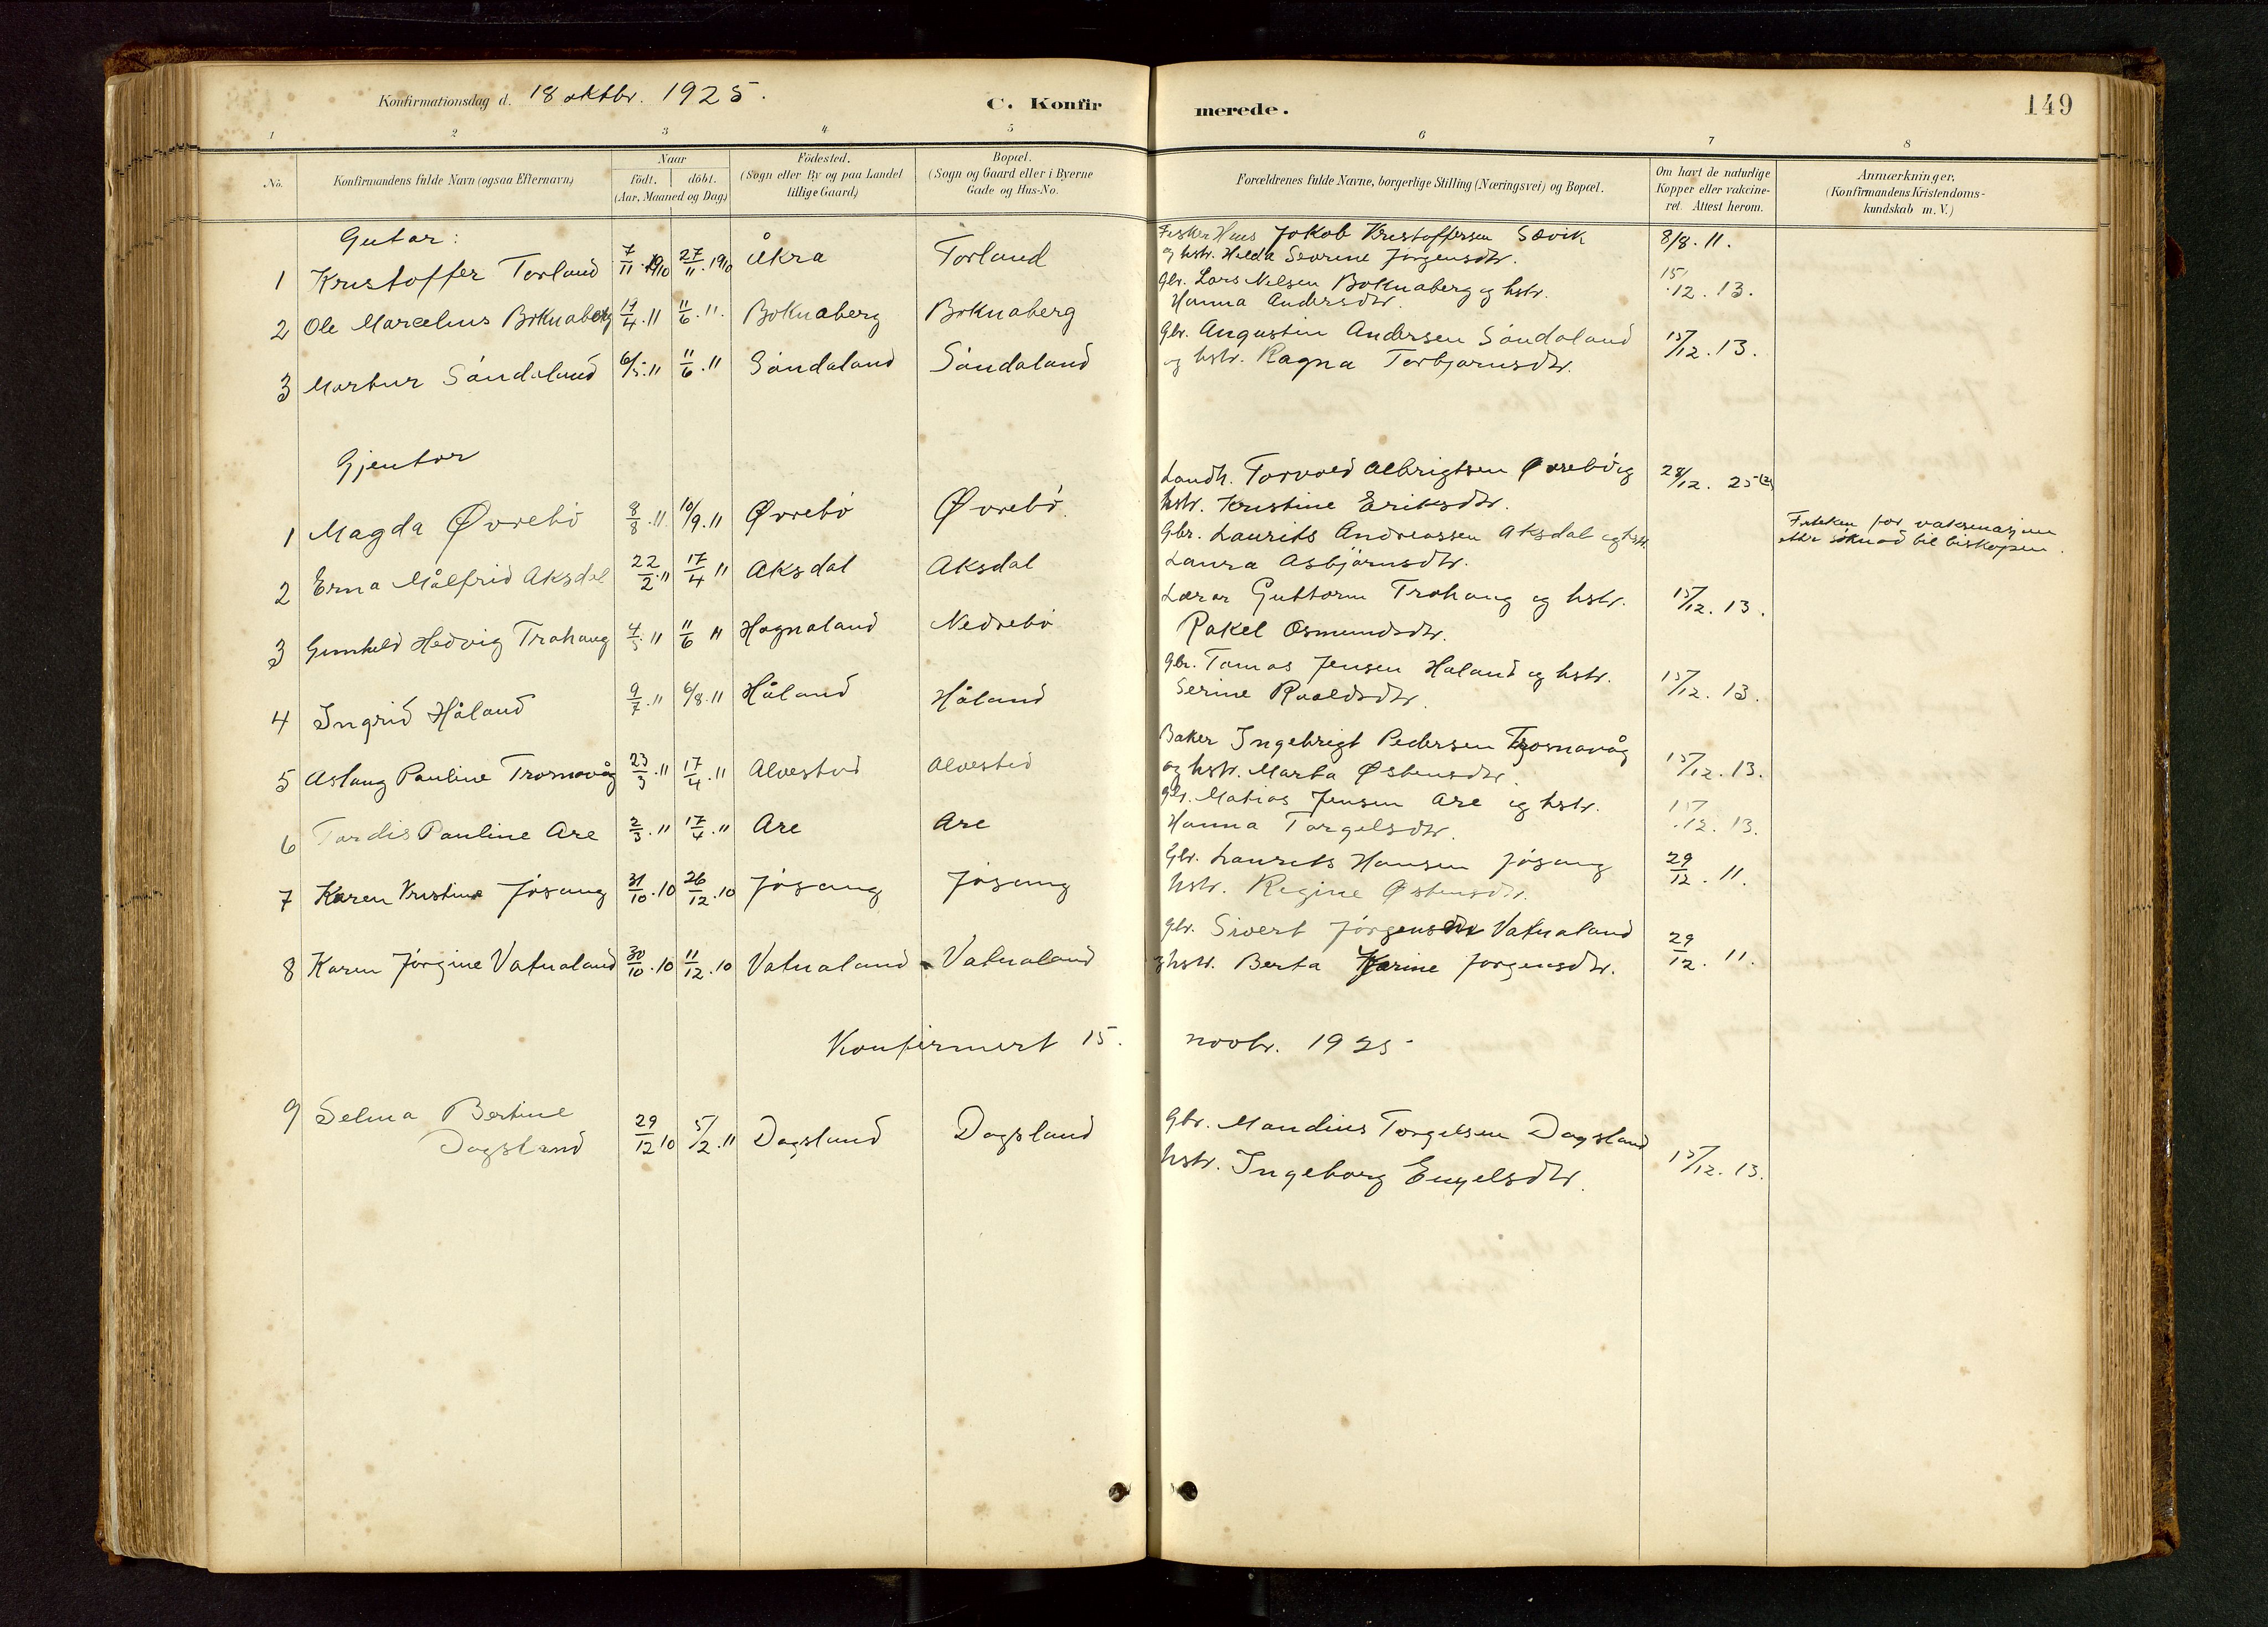 Konfirmationsdag d. 18 oktbr. 1925. C. Konfirmerede. 149
1 2 3 4 5 6 7 8
No. Konfirmandens fulde Navn (ogsaa Efternavn) Naar födt. döbt. (Aar, Maaned og Dag) Födested. (Sogn eller By og paa Landet tillige Gaard) Bopæl. (Sogn og Gaard eller i Byerne Gade og Hus-No. Forældrenes fulde Navne, borgerlige Stilling (Næringsvei) og Bopæl. Om havt de naturlige Kopper eller vakcineret. Attest herom. Anmærkninger. (Konfirmandens Kristendomskundskab m. V.)
Gutar:
1 Kristoffer Torland 7/11.1910 27/11.1910 Åkra Torland Fisker Hans Jakob Kristoffersen Sævik 8/8.11.
og hstr. Hilda Severine Jörgensdtr.
2 Ole Marselius Boknaberg 19/4.11 11/6.11. Boknaberg Boknaberg Gbr. Lars Nilsen Boknaberg og hstr. 15/12.13.
Hanna Andersdtr.
3 Martin Söndaland 6/5.11 11/6.11 Söndaland Söndaland Gbr. Augustin Andersen Söndaland 15/12.13.
og hstr. Ragna Torbjørnsdtr.
Gjentor
1 Magda Øvrebö 8/8.11. 10/9.11 Øvrebö Øvrebö. Landh. Torvald Albrigtsen Øvrebö og 28/12. 25
hstr. Kristine Eriksdtr.
2 Erna Målfrid Aksdal 22/2.11 17/4 11 Aksdal Aksdal Gbr. Laurits Andreassen Aksdal og hstr. Friteken for vaksinasjon
Laura Asbjörnsdtr. etter söknad til biskopen.
3 Gunhild Hedvig Trohaug 4/5 11 11/6 11 Hognaland Nedrebö Lærar Guttorm Trohaug og hstr. 15/12.13.
Rakel Osmundsdtr.
4 Ingrid Håland 9/7.11 6/8.11 Håland Håland Gbr. Tomas Jensen Håland og hstr. 15/12.13.
Serine Roaldsdtr.
5 Aslaug Pauline Trosnavåg 23/3.11 17/4.11 Alvestad Alvestad Baker Ingebrigt Pedersen Trosnavåg 15/12.13.
og hstr. Marta Østensdtr.
6 Tordis Pauline Are 2/3.11 17/4.11 Are Are Gbr. Matias Jensen Are og hstr. 15/12.13.
Hanna Torgelsdtr.
7 Karen Kristine Jösang 31/10.10 26/12.10 Jösang Jösang Gbr. Laurits Hansen Jösang 29/12.11.
hstr. Regine Østensdtr.
8 Karen Jörgine Vatnaland 30/10.10 11/12.10 Vatnaland Vatnaland Gbr. Sivert Jörgensen Vatnaland 29/12.11.
og hstr. Berta Karine Jorgensdtr.
Konfirmert 15. novbr. 1925
9 Selma Bertine Gbr. Mandius Torgelsen Dagsland
Dagsland 29/12 10 5/2.11 Dagsland Dagsland hstr. Ingeborg Engelsdtr. 15/12.13.